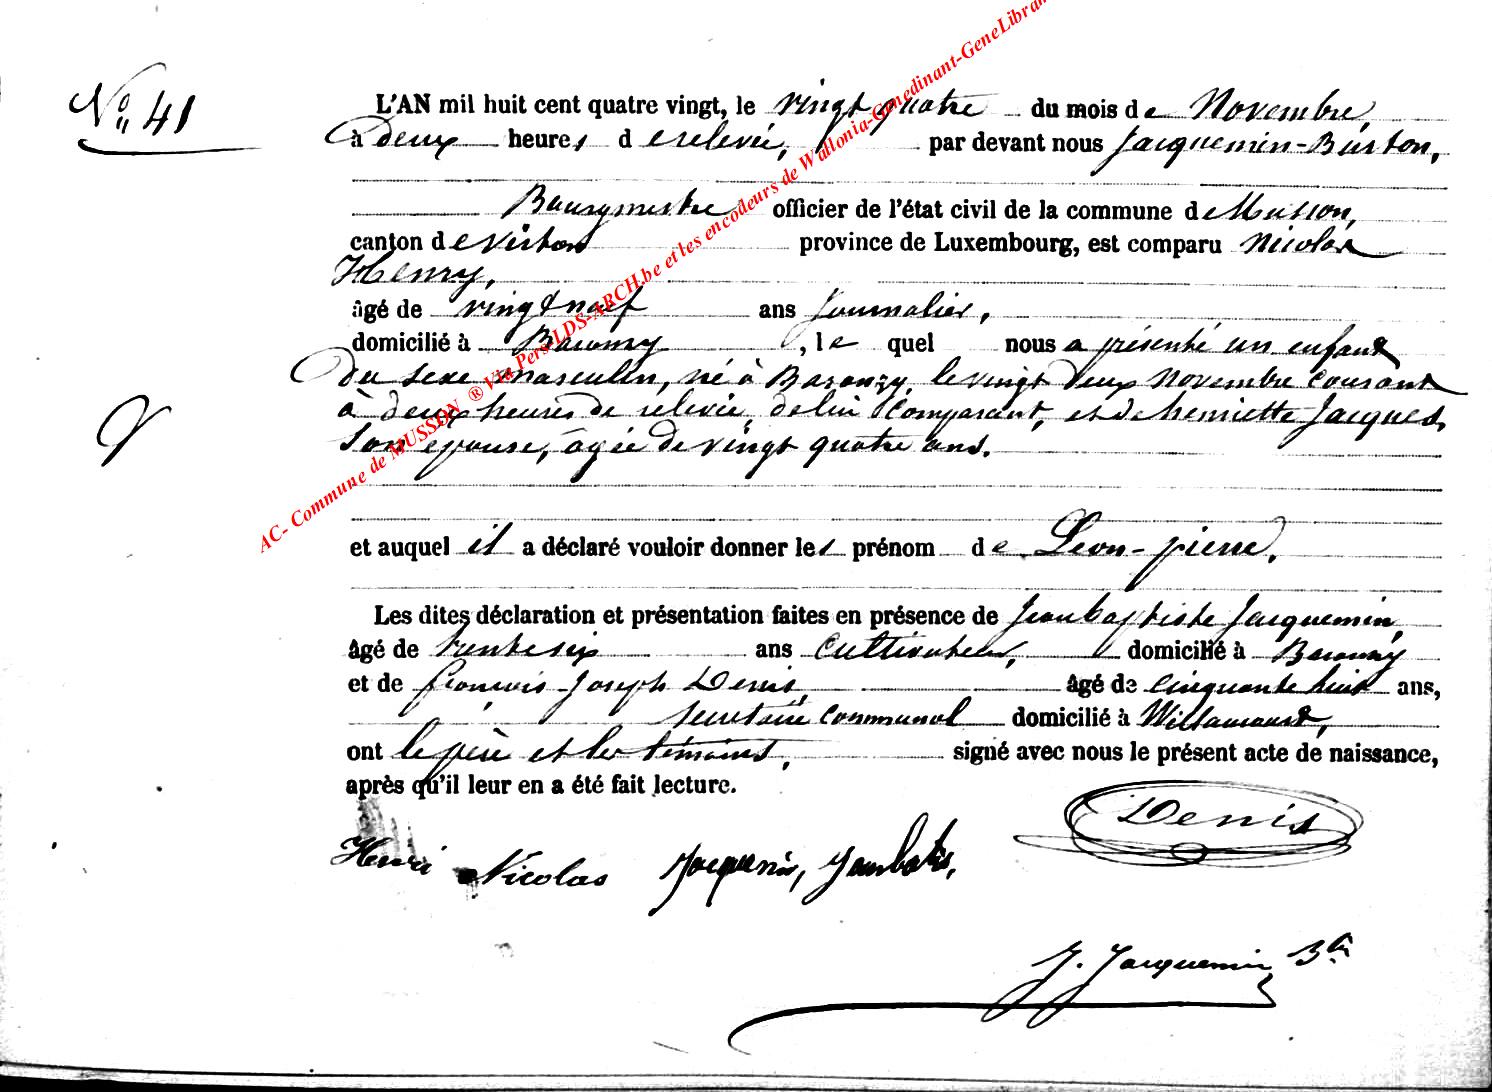 N° 41
L'AN mil huit cent quatre vingt, le vingt quatre du mois de Novembre,
à deux heures de relevée, par devant nous Jacquemin-Burton,
Bourgmestre officier de l'état civil de la commune de Musson,
canton de Virton province de Luxembourg, est comparu Nicolas
Henry,
âgé de vingt neuf ans Journalier,
domicilié à Baranzy, le quel nous a présenté un enfant
du sexe masculin, né à Baranzy, le vingt deux novembre courant
à deux heures de relevée, de lui comparant, et de henriette Jacques,
son epouse, âgée de vingt quatre ans.
et auquel il a déclaré vouloir donner les prénom de Léon-pierre.
Les dites déclaration et présentation faites en présence de Jean baptiste Jacquemin,
âgé de trente six ans cultivateur, domicilié à Baranzy
et de françois-Joseph Denis, âgé de cinquante huit ans,
secrétaire communal domicilié à Willancourt,
ont le père et les témoins, signé avec nous le présent acte de naissance,
après qu'il leur en a été fait lecture.
Denis
Henri Nicolas Jacquemin,
J. Jacquemin
AC- Commune de MUSSON ® Via Pers-LDS-ARCH.be et les encodeurs de Wallonia-Genedinant-GeneLibran